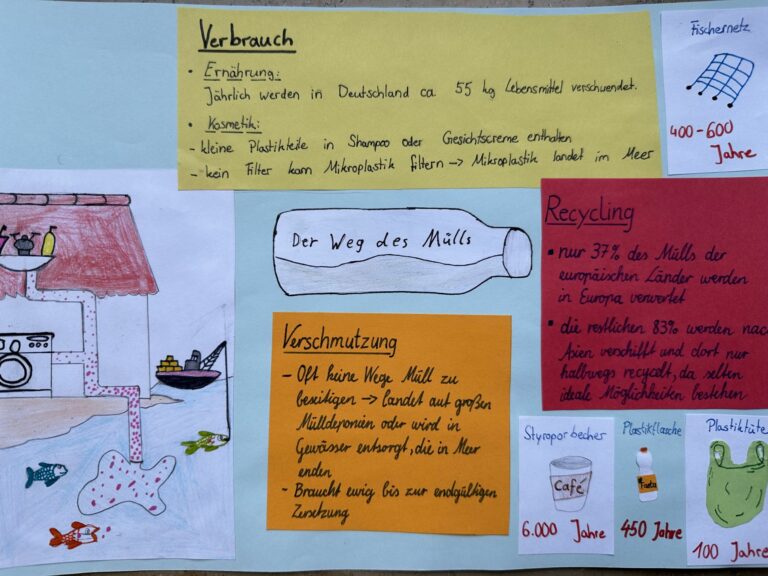 Verbrauch
• Ernährung:
Jährlich werden in Deutschland ca. 55 kg Lebensmittel verschwendet.
• Kosmetik:
- kleine Plastikteile in Shampoo oder Gesichtscreme enthalten
- kein Filter kann Mikroplastik filtern → Mikroplastik landet im Meer
Fischernetz
400-600
Jahre
Der Weg des Mülls
Recycling
▪ nur 37% des Mülls der
europäischen Länder werden
in Europa verwertet
▪ die restlichen 83% werden nach
Asien verschifft und dort nur
halbwegs recycelt, da selten
ideale Möglichkeiten bestehen
Verschmutzung
- Oft keine Wege Müll zu
beseitigen → landet auf großen
Mülldeponien oder wird in
Gewässer entsorgt, die in Meer
enden
- Braucht ewig bis zur endgültigen
Zersetzung
Styroporbecher
Café
6.000 Jahre
Plastikflasche
Fanta
450 Jahre
Plastiktüte
100 Jahre